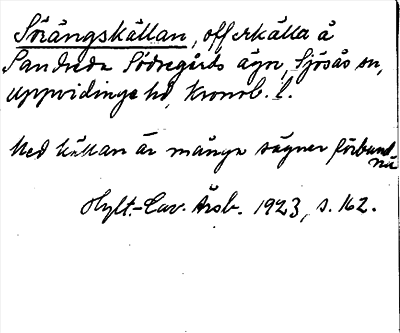 Sörängskällan, offerkälla å
Sandreda Södregårds ägor, Sjösås sn,
Uppvidinge hd, Kronob. l.
Med källan är många sägner förbund
na
Hylt.-Cav. Årsb. 1923, s. 162.